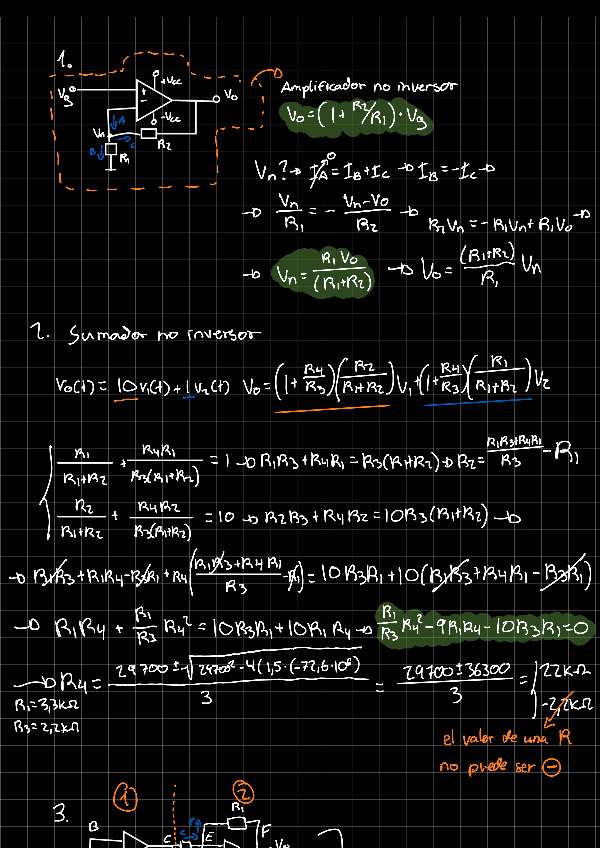 1.
+Vcc
Vg
Vo
-Vcc
Vn
A
B
C
R1
R2
Amplificador no inversor
Vo=(1+R2/R1)·Vg
Vn? → IA=IB+IC → IB=-IC →
→ Vn/R1 = - (Vn-Vo)/R2 → R2Vn=-R1Vn+R1Vo →
→ Vn = R1Vo/(R1+R2) → Vo = (R1+R2)/R1 Vn
2. Sumador no inversor
Vo(t) = 10v1(t)+1v2(t) Vo=(1+R4/R3)(R2/(R1+R2))V1+(1+R4/R3)(R1/(R1+R2))V2
R1/(R1+R2) + R4R1/(R3(R1+R2)) = 1 → R1R3+R4R1=R3(R1+R2) → R2= (R1R3+R4R1)/R3 - R1
R2/(R1+R2) + R4R2/(R3(R1+R2)) = 10 → R2R3+R4R2=10R3(R1+R2) →
→ R1R3+R1R4-R3R1+R4((R1R3+R4R1)/R3 - R1)=10R3R1+10(R1R3+R4R1-R3R1)
→ R1R4 + R1/R3 R4² = 10R3R1+10R1R4 → R1/R3 R4²-9R1R4-10R3R1=0
→ R4 = (29700±√(29700²-4(1,5·(-72,6·10⁶))))/3 = (29700±36300)/3 = { 22kΩ
-2,2kΩ
R1=3,3kΩ
R3=2,2kΩ
el valor de una R
no puede ser ⊖
3.
1
2
B
C
E
R1
F
Vo